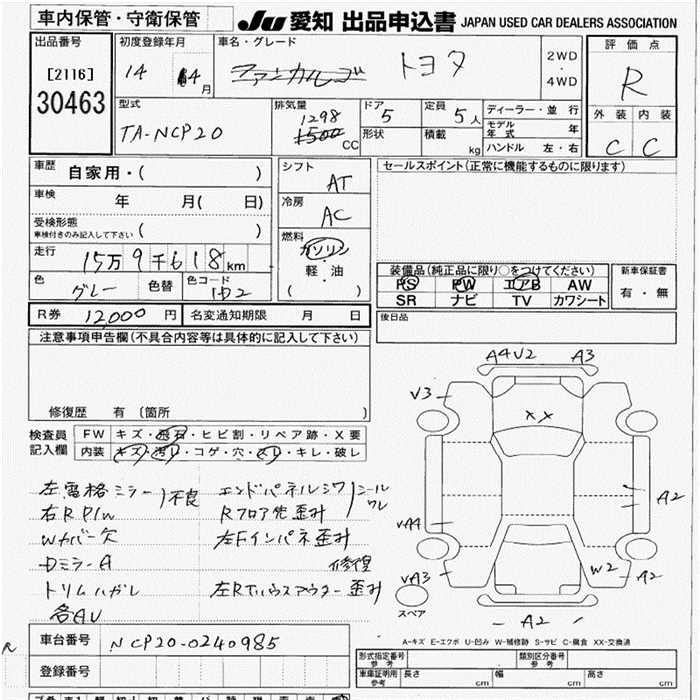 車内保管・守衛保管
JU 愛知 出品申込書 JAPAN USED CAR DEALERS ASSOCIATION
出品番号
[2116]
30463
初度登録年月
14 4月
車名・グレード
ファンカルゴ トヨタ
2WD
・
4WD
評価点
R
外装 内装
C C
型式
TA-NCP20
排気量
1298
1500 CC
ドア 5
形状
定員 5人
積載 kg
ディーラー・並行
モデル年式 年
ハンドル 左・右
車歴 自家用・( )
車検 年 月( 日)
受検形態
車検付きのみ記入して下さい ( )
走行 15万9千618km
色 グレー 色替 色コード 1D2
シフト AT
冷房 AC
燃料
ガソリン
・
軽・油
( )
セールスポイント(正常に機能するものに限ります)
装備品(純正品に限り○をつけてください)
PS PW エアB AW
SR ナビ TV カワシート
新車保証書
有・無
R券 12,000円 名変通知期限 月 日
後日品
注意事項申告欄(不具合内容等は具体的に記入して下さい)
修復歴 有(箇所 )
検査員記入欄
FW キズ・飛石・ヒビ割・リペア跡・X要
内装 キズ・汚レ・コゲ・穴・スレ・キレ・破レ
左電格ミラー 不良
右R P/W
Wカバー欠
DミラーA
トリムハガレ
各AU
エンドパネルシワ シールワレ
Rフロア先歪み
左Fインパネ歪み
修復
左Rタイハウスアウター歪み
A4U2 A3
V3
XX
A2
VA4
VA3
W2 A2
A2
スペア
A-キズ E-エクボ U-凹み W-補修跡 S-サビ C-腐食 XX-交換済
車台番号 NCP20-0240985
R
登録番号
形式指定番号 参考
類別区分番号 参考
車庫証明用 参考 長さ cm 幅 cm 高さ cm